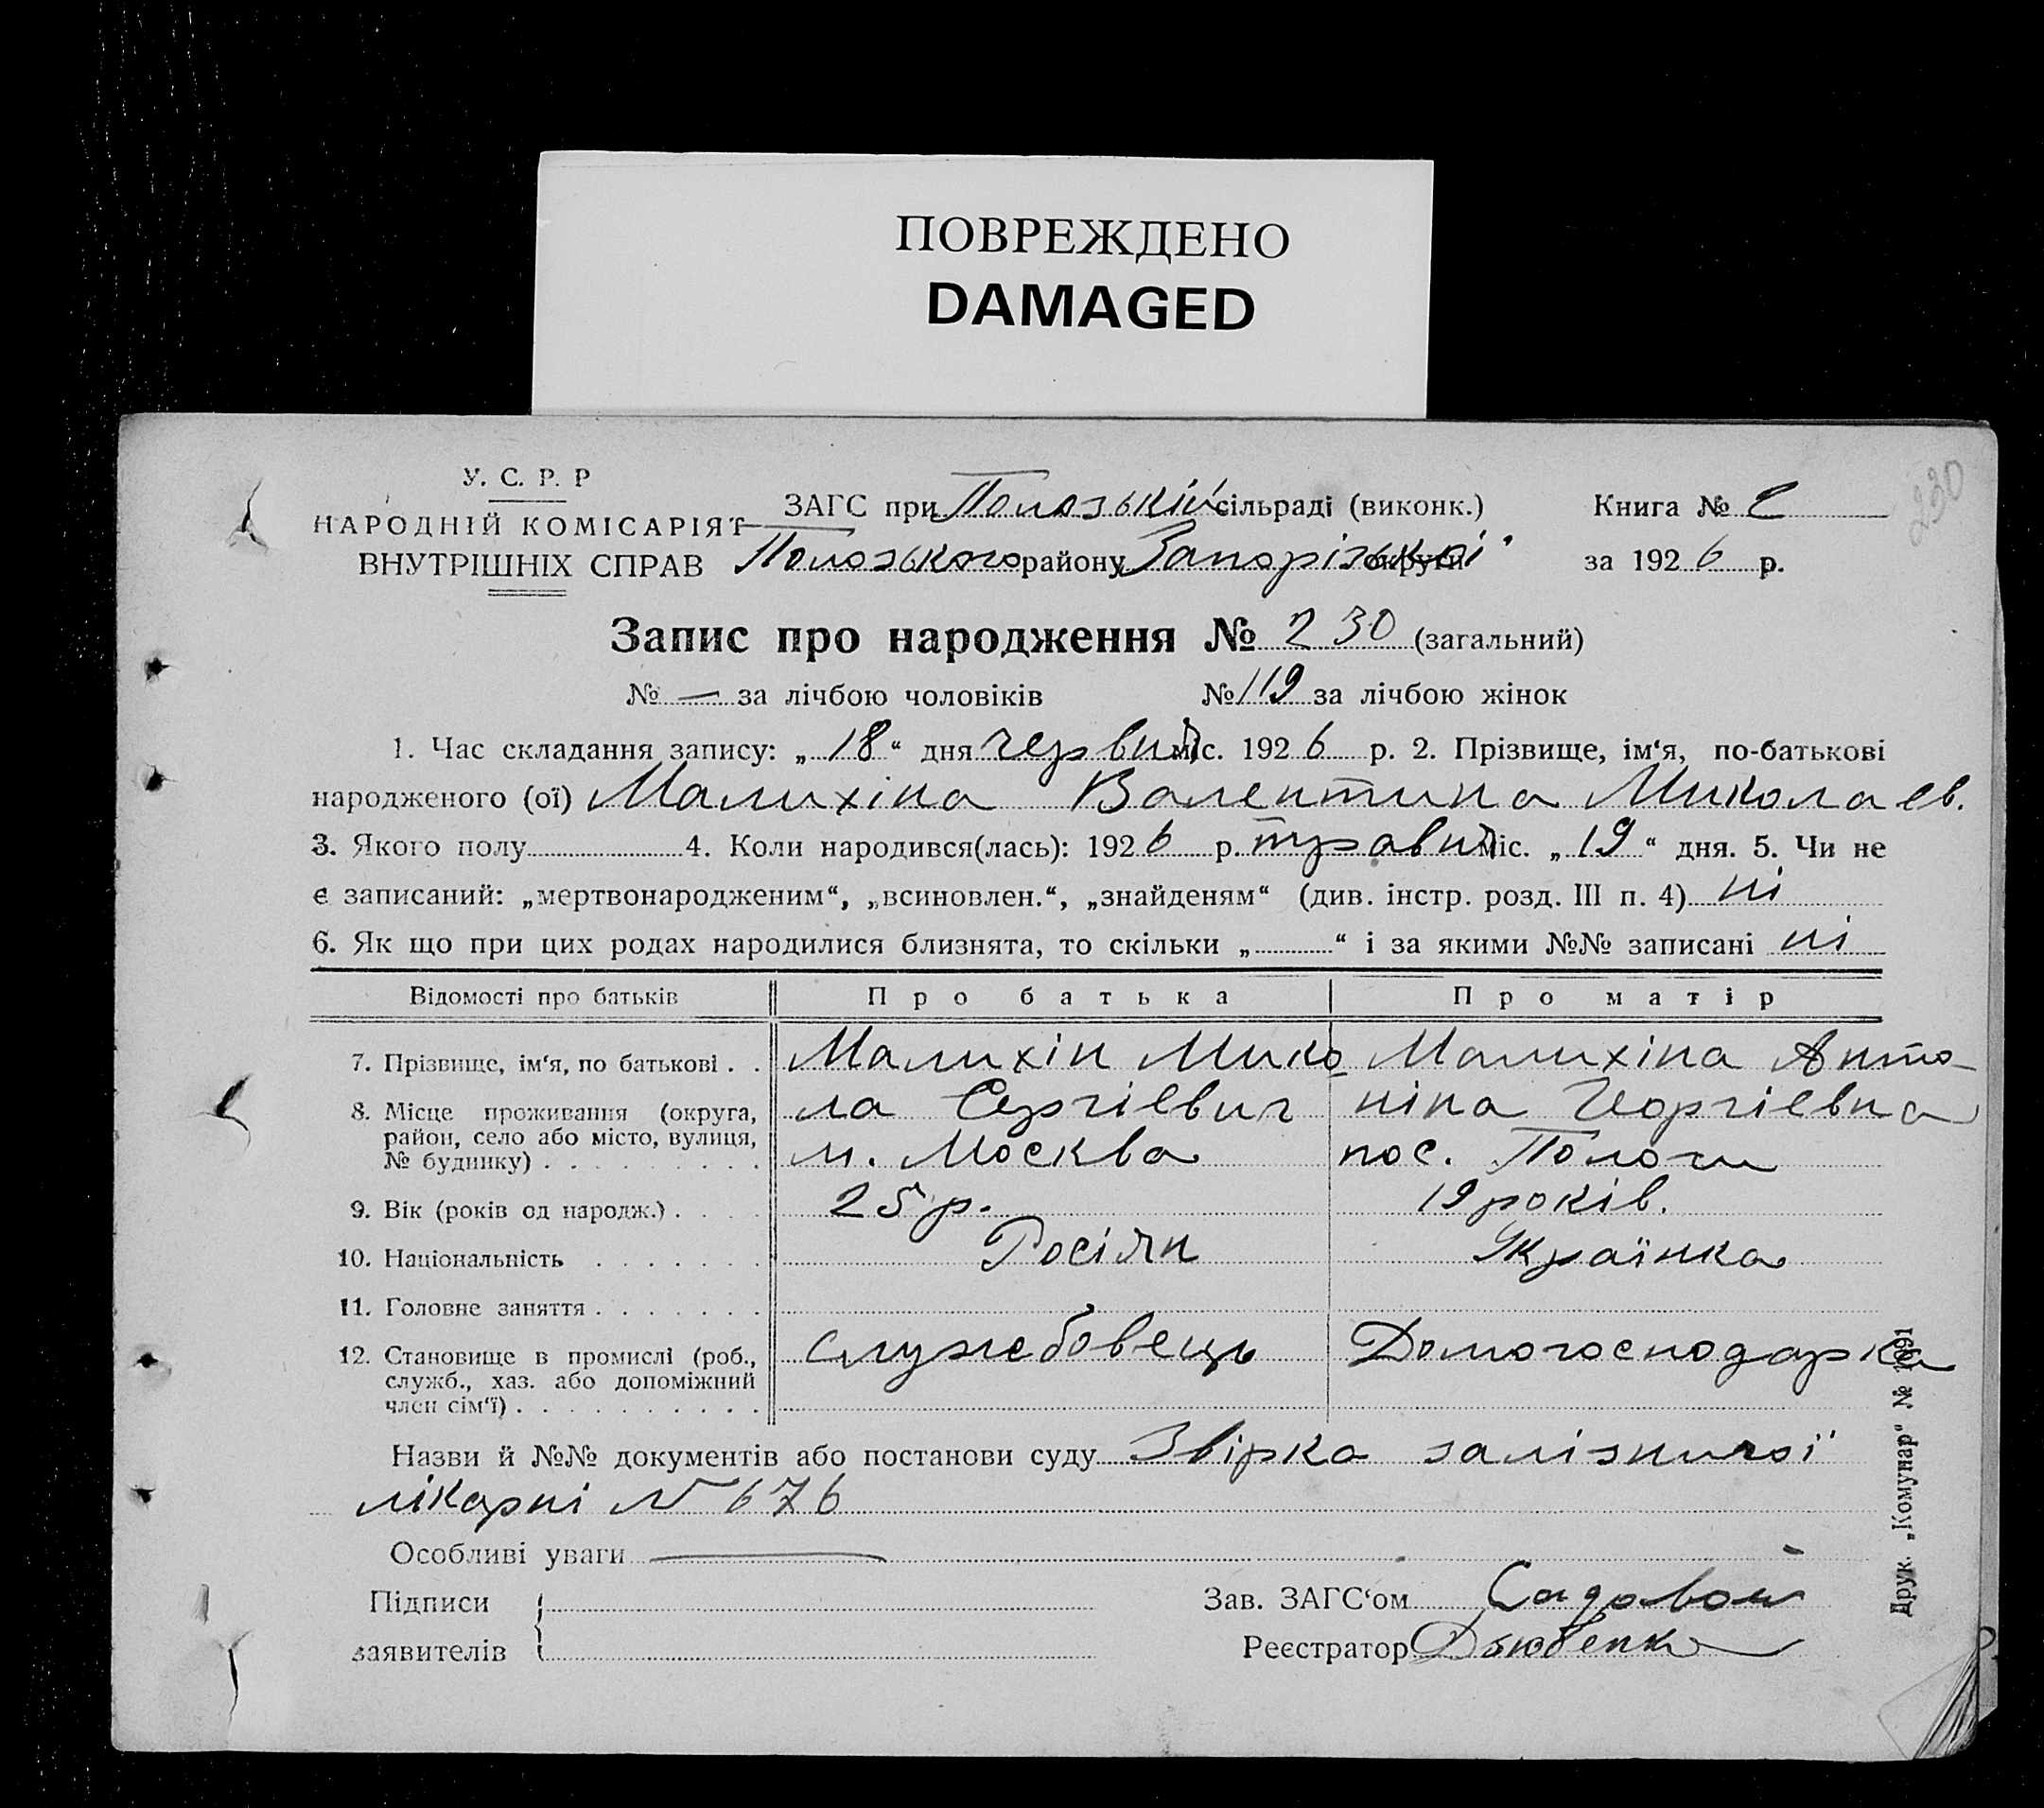 ПОВРЕЖДЕНО
DAMAGED
230
У. С. Р. Р
НАРОДНІЙ КОМІСАРІЯТ
ВНУТРІШНІХ СПРАВ
ЗАГС при Пологській сільраді (виконк.) Книга № 2
Пологського району Запорізької округи за 1926 р.
Запис про народження № 230 (загальний)
№ — за лічбою чоловіків № 119 за лічбою жінок
1. Час складання запису: „18“ дня червня міс. 1926 р. 2. Прізвище, ім‘я, по-батькові
народженого (ої) Малихіна Валентина Миколаєв.
3. Якого полу 4. Коли народився(лась): 1926 р. травня міс. „19“ дня. 5. Чи не
є записаний: „мертвонародженим“, „всиновлен.“, „знайденям“ (див. інстр. розд. III п. 4) ні
6. Як що при цих родах народилися близнята, то скільки „ “ і за якими №№ записані ні
Відомості про батьків Про батька Про матір
7. Прізвище, ім‘я, по батькові . . Малихін Мико Малихіна Анто-
8. Місце проживання (округа, ла Сергієвич ніна Георгієвна
район, село або місто, вулиця,
№ будинку) . . . . . . . . . м. Москва пос. Пологи
9. Вік (років од народж.) . . . . 25 р. 19 років.
10. Національність . . . . . . . Росіян Українка
11. Головне заняття . . . . . . .
12. Становище в промислі (роб., службовець Домогосподарка
служб., хаз. або допоміжний
член сім‘ї) . . . . . . . . . .
Назви й №№ документів або постанови суду Звірка залізничої
лікарні № 676
Особливі уваги —
Підписи
заявителів
Зав. ЗАГС‘ом Садовой
Реєстратор
Друк. „Комунар“ № 1691